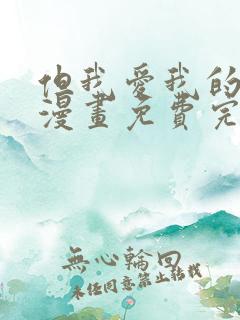 他我愛我的
漫畫免費完
無心輪回
未经同意禁止转载